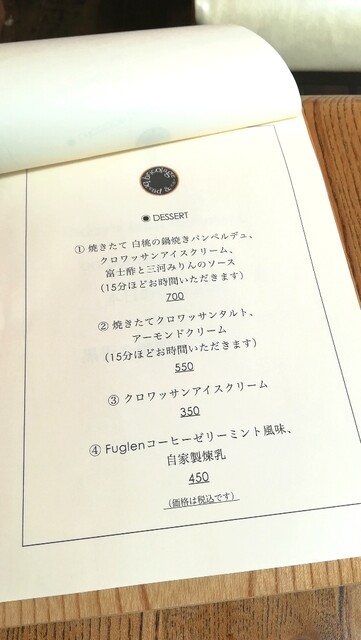 ◉ DESSERT
① 焼きたて 白桃の鍋焼きパンペルデュ、
クロワッサンアイスクリーム、
富士酢と三河みりんのソース
(15分ほどお時間いただきます)
700
② 焼きたてクロワッサンタルト、
アーモンドクリーム
(15分ほどお時間いただきます)
550
③ クロワッサンアイスクリーム
350
④ Fuglenコーヒーゼリーミント風味、
自家製煉乳
450
(価格は税込です)